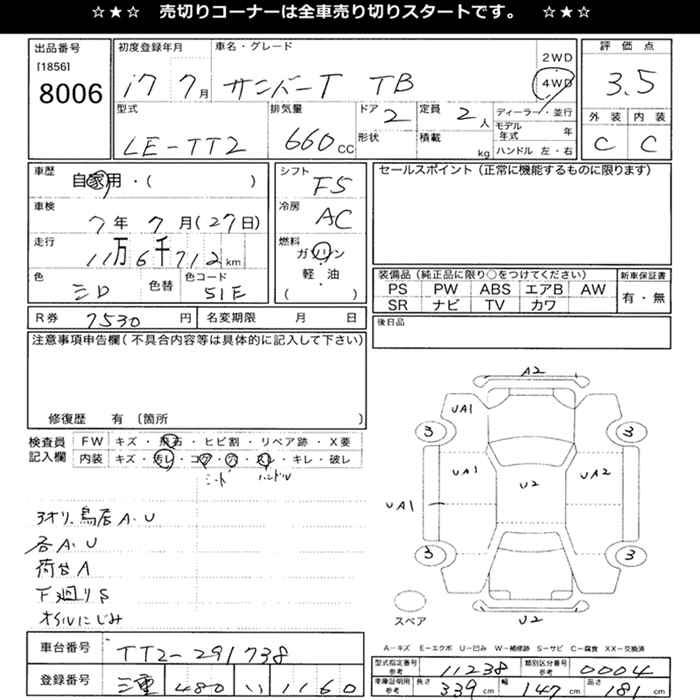 ☆★☆ 売切りコーナーは全車売り切りスタートです。 ☆★☆
出品番号
[1856]
8006
初度登録年月
17 7月
車名・グレード
サンバーT TB
2WD
4WD
評価点
3.5
外装 内装
C C
型式
LE-TT2
排気量
660CC
ドア 2
形状
定員 2人
積載 kg
ディーラー・並行
モデル年式 年
ハンドル 左・右
車歴
自家用・( )
車検
7年7月(27日)
走行
11万6千712km
色
シロ
色替
色コード
51E
シフト
F5
冷房
AC
燃料
ガソリン
・
軽・油
( )
セールスポイント(正常に機能するものに限ります)
装備品(純正品に限り○をつけてください)
PS PW ABS エアB AW
SR ナビ TV カワ
新車保証書
有・無
R券 7530円
名変期限 月 日
後日品
注意事項申告欄(不具合内容等は具体的に記入して下さい)
修復歴 有 〔箇所 〕
検査員記入欄
FW キズ・飛石・ヒビ割・リペア跡・X要
内装 キズ・汚レ・コゲ・穴・スレ・キレ・破レ
シート ハンドル
3オリ,鳥居A.U
各A.U
荷台A
下廻りS
オイルにじみ
A2
UA1
3 3
UA1 U2 UA2
UA1
3 3
スペア
U2
A-キズ E-エクボ U-凹み W-補修跡 S-サビ C-腐食 XX-交換済
車台番号 TT2-291738
登録番号 三重 480 い 1160
型式指定番号 参考 11238
類別区分番号 参考 0004
車庫証明用 参考 長さ 339cm 幅 147cm 高さ 181cm